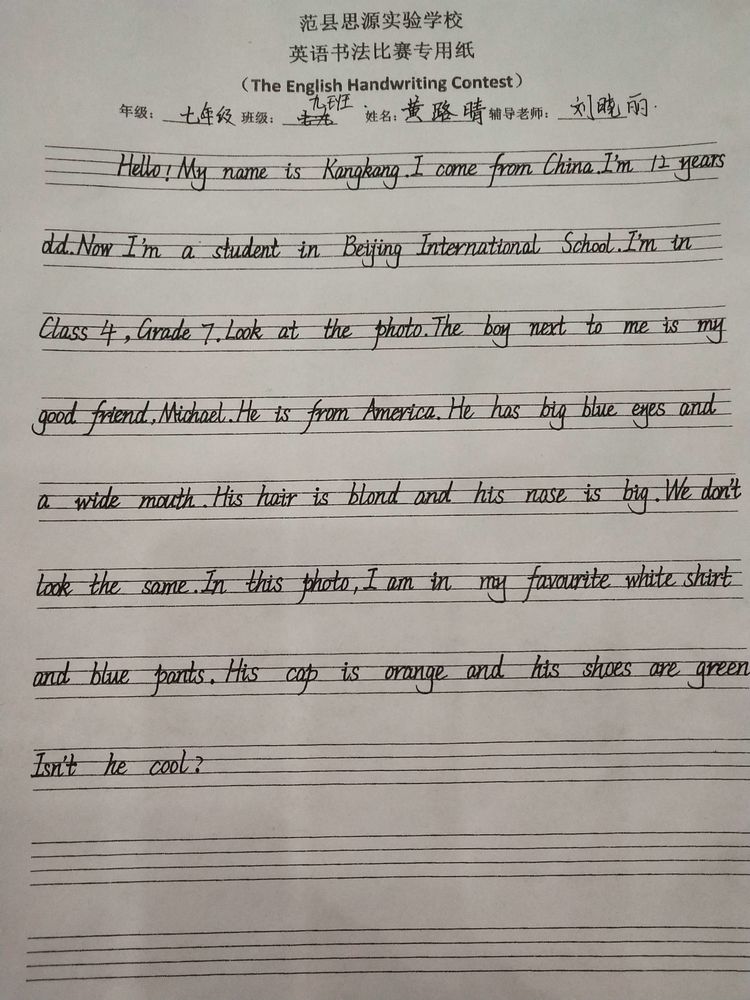 范县思源实验学校
英语书法比赛专用纸
（The English Handwriting Contest）
年级：七年级 班级：九班 姓名：黄路晴 辅导老师：刘晓丽.
Hello! My name is Kangkang. I come from China. I'm 12 years
old. Now I'm a student in Beijing International School. I'm in
Class 4, Grade 7. Look at the photo. The boy next to me is my
good friend, Michael. He is from America. He has big blue eyes and
a wide mouth. His hair is blond and his nose is big. We don't
look the same. In this photo, I am in my favourite white shirt
and blue pants. His cap is orange and his shoes are green
Isn't he cool?